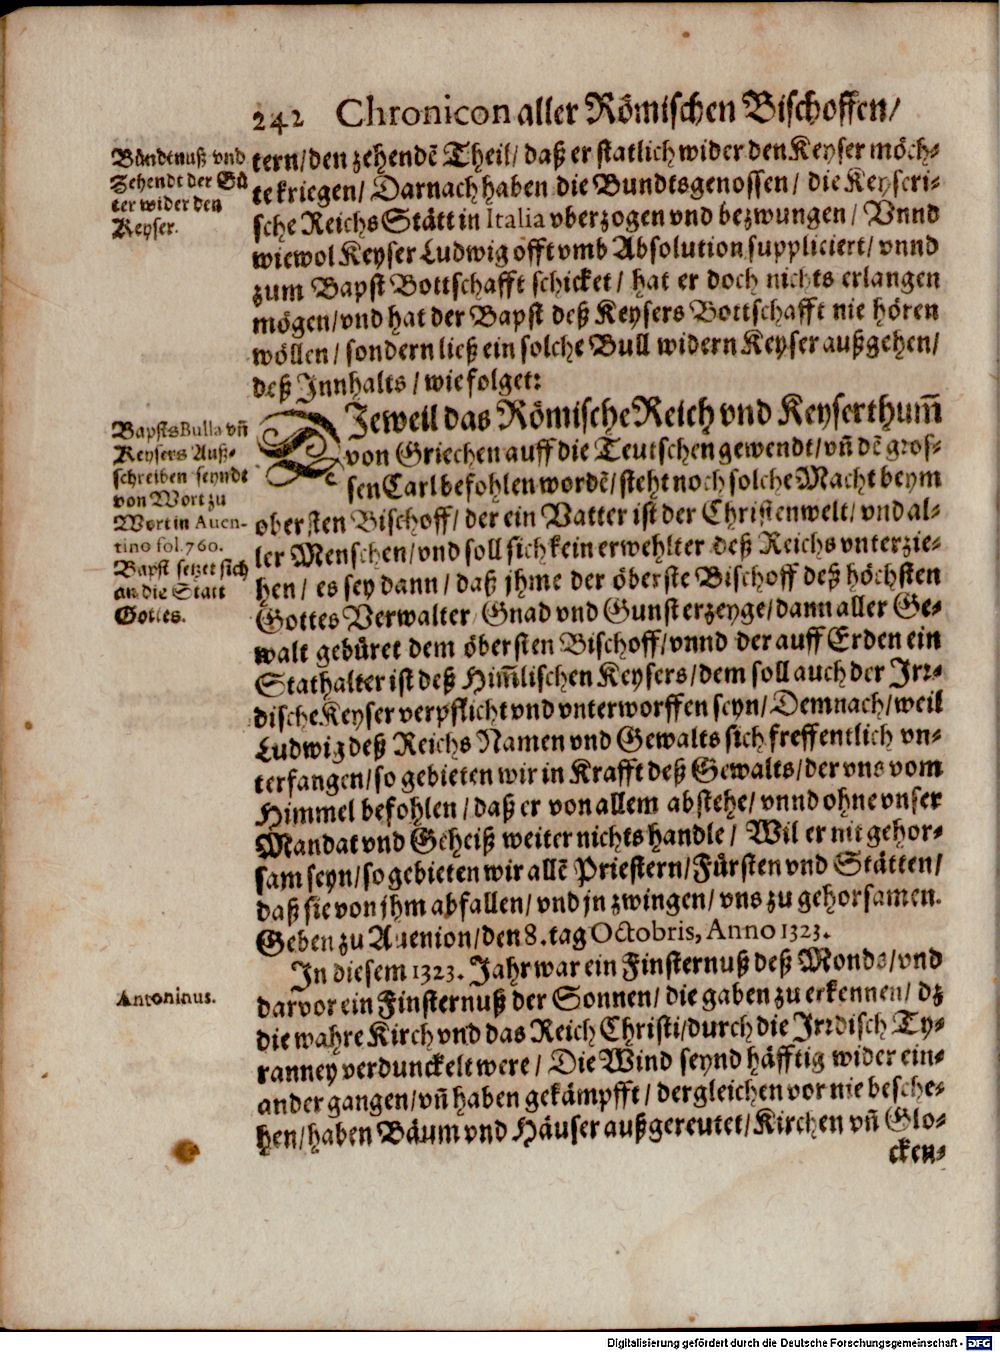 242 Chronicon aller Römischen Bischoffen/
Bündtnuß vnd
Zehendt der Gü
ter wider den
Keyser.
tern/den zehendẽ Theil/ daß er statlich wider den Keyser möch-
te kriegen/ Darnach haben die Bundtsgenossen/ die Keyseri-
sche Reichs Stätt in Italia vberzogen vnd bezwungen/ Vnnd
wiewol Keyser Ludwig offt vmb Absolution suppliciert/ vnnd
zum Bapst Bottschafft schicket/ hat er doch nichts erlangen
mögen/vnd hat der Bapst deß Keysers Bottschafft nie hören
wöllen/ sondern ließ ein solche Bull widern Keyser außgehen/
deß Innhalts/ wie folget:
Bapsts Bulla vñ
Keysers Auß-
schreiben seyndt
von Wort zu
Wort in Auen-
tino fol.760.
Bapst setzet sich
an die Statt
Gottes.
DIeweil das Römische Reich vnd Keyserthum̃
von Griechen auff die Teutschen gewendt/vñ dẽ gros-
sen Carl befohlen wordẽ/steht noch solche Macht beym
obersten Bischoff/ der ein Vatter ist der Christenwelt/ vnd al-
ler Menschen/vnd soll sich kein erwehlter deß Reichs vnterzie-
hen/ es sey dann/ daß jhme der öberste Bischoff deß höchsten
Gottes Verwalter/ Gnad vnd Gunst erzeyge/dann aller Ge-
walt gebüret dem öbersten Bischoff/vnnd der auff Erden ein
Stathalter ist deß Him̃lischen Keysers/dem soll auch der Irr-
dische Keyser verpflicht vnd vnterworffen seyn/ Demnach/weil
Ludwig deß Reichs Namen vnd Gewalts sich freffentlich vn-
terfangen/so gebieten wir in Krafft deß Gewalts/der vns vom
Himmel befohlen/daß er von allem abstehe/vnnd ohne vnser
Mandat vnd Geheiß weiter nichts handle/ Wil er nit gehor-
sam seyn/so gebieten wir allẽ Priestern/Fürsten vnd Stätten/
daß sie von jhm abfallen/vnd jn zwingen/vns zu gehorsamen.
Geben zu Auenion/den 8.tag Octobris, Anno 1323.
Antoninus.
In diesem 1323. Jahr war ein Finsternuß deß Monds/vnd
darvor ein Finsternuß der Sonnen/ die gaben zu erkennen/ dz
die wahre Kirch vnd das Reich Christi/durch die Irrdisch Ty-
ranney verdunckelt were/ Die Wind seynd häfftig wider ein-
ander gangen/vñ haben gekämpfft/ dergleichen vor nie besche-
hen/haben Bäum vnd Häuser außgereutet/Kirchen vñ Glo-
cken-
Digitalisierung gefördert durch die Deutsche Forschungsgemeinschaft - DFG